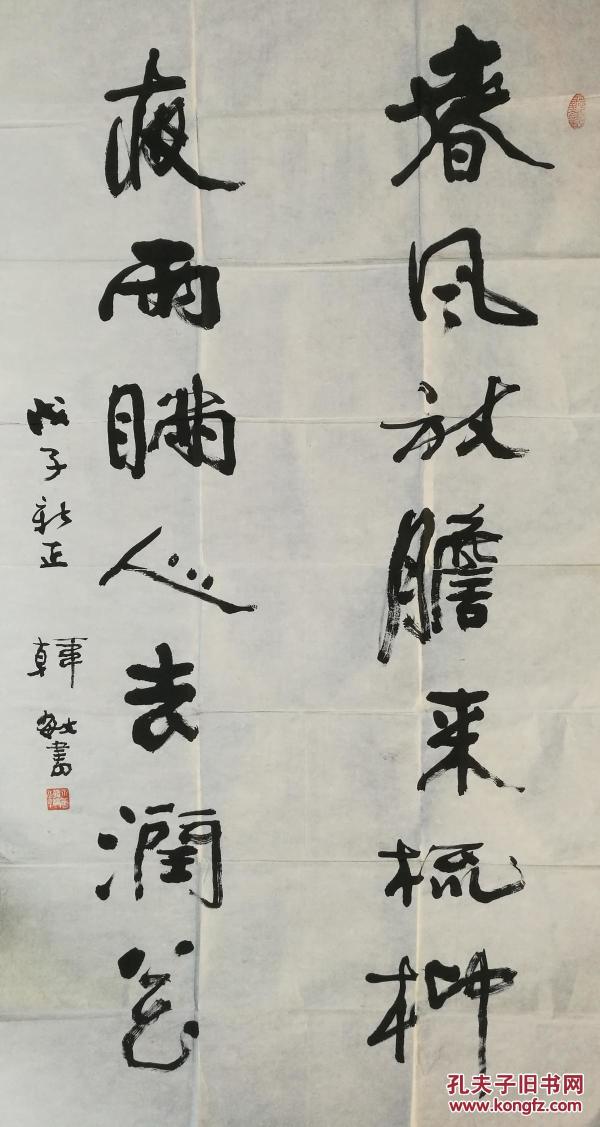 春风放膽来梳柳
夜雨瞒人去潤花
戊子新正 韩敏書
孔夫子旧书网
www.kongfz.com